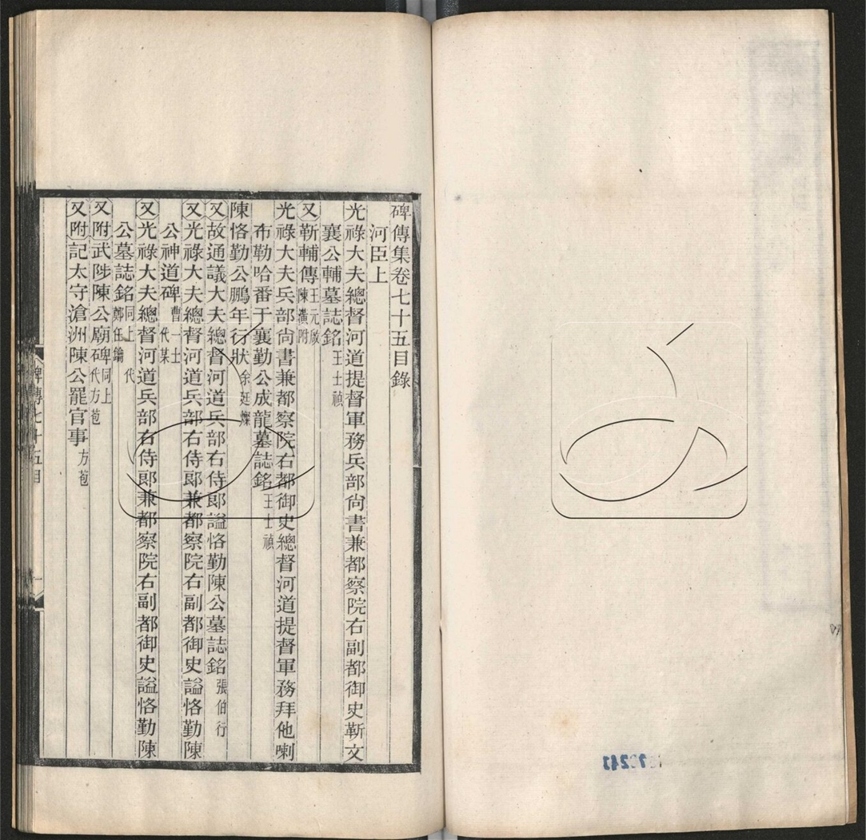 碑傳集卷七十五目錄
河臣上
光祿大夫總督河道提督軍務兵部尙書兼都察院右副都御史靳文
襄公輔墓誌銘王士禎
又靳輔傳王元啟 陳黃附
光祿大夫兵部尙書兼都察院右都御史總督河道提督軍務拜他喇
布勒哈番于襄勤公成龍墓誌銘王士禎
陳恪勤公鵬年行狀余廷燦
又故通議大夫總督河道兵部右侍郎謚恪勤陳公墓誌銘張伯行
又光祿大夫總督河道兵部右侍郎兼都察院右副都御史謚恪勤陳
公神道碑曹一士代某
又光祿大夫總督河道兵部右侍郎兼都察院右副都御史謚恪勤陳
公墓誌銘同上 代鄭任鑰
又附武陟陳公廟碑同上代方苞
又附記太守滄洲陳公罷官事方苞
碑傳七十五目
一